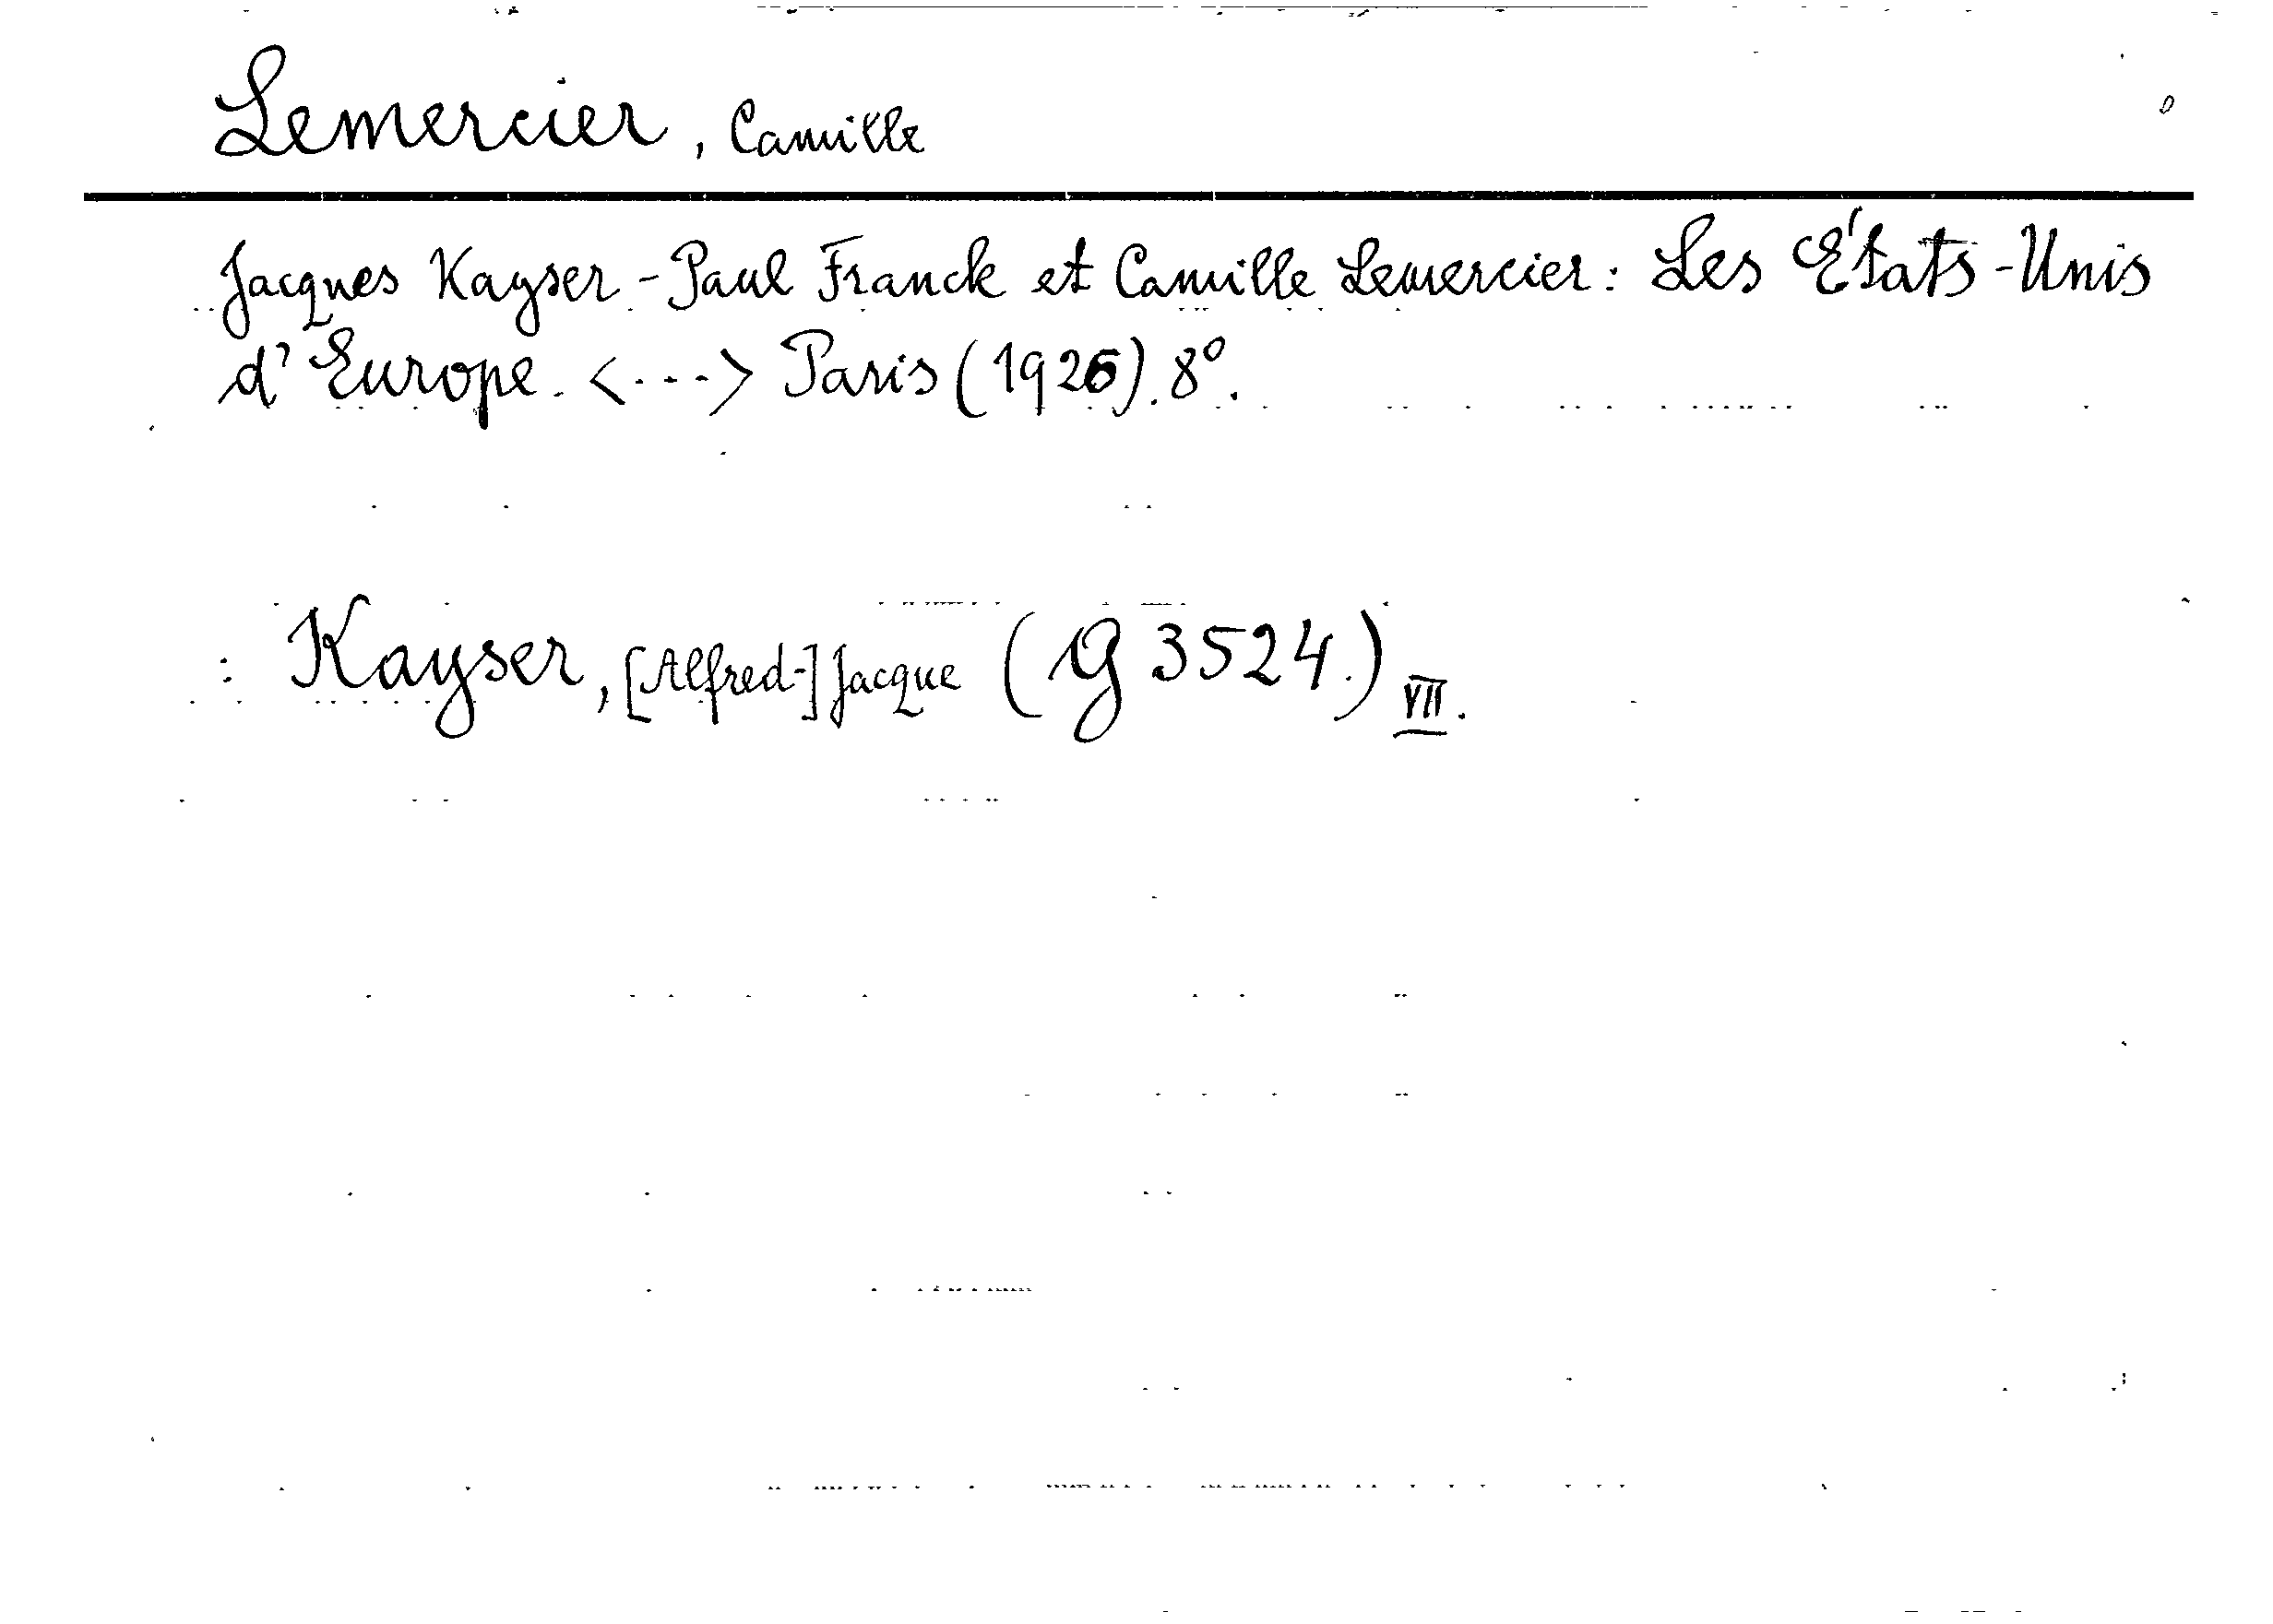 Lemercier, Camille
Jacques Kayser - Paul Franck et Camille Lemercier: Les États-Unis
d'Europe. <...> Paris (1926). 8°.
: Kayser, [Alfred-] Jacque (G 3524.) VII.